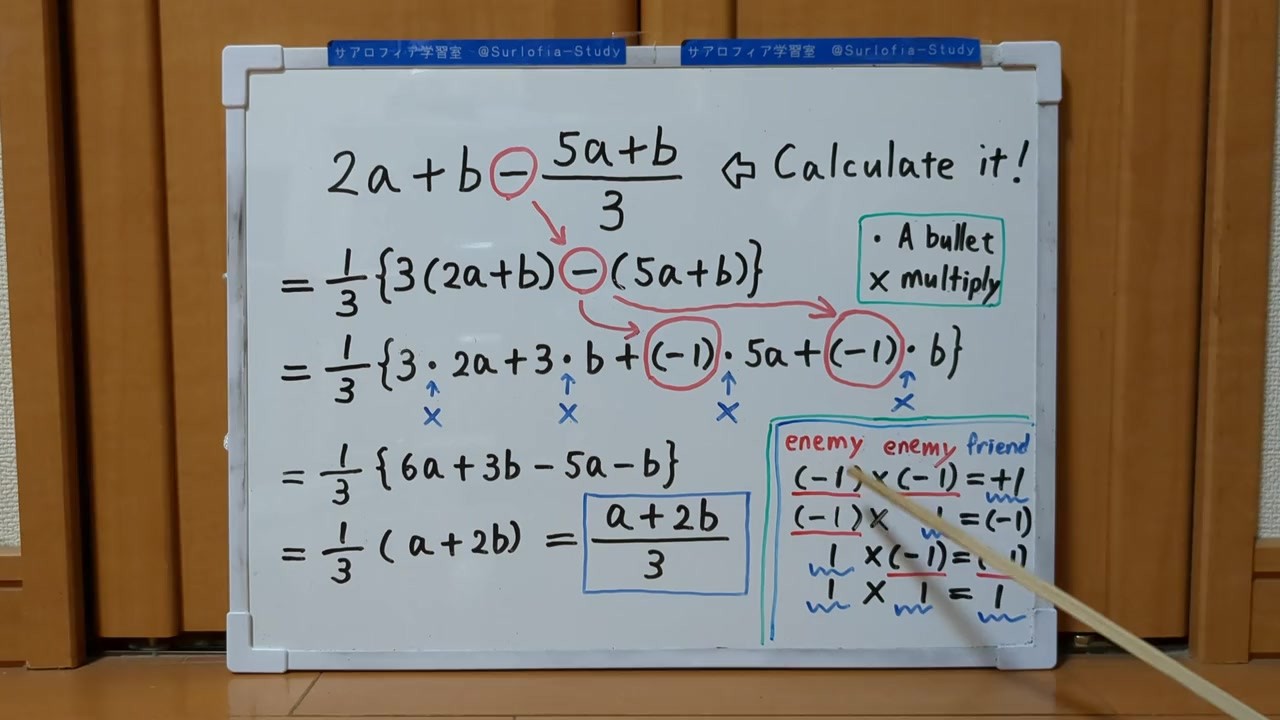 サアロフィア学習室 @Surlofia-Study
サアロフィア学習室 @Surlofia-Study
2a+b-\frac{5a+b}{3} ⇦ Calculate it!
=\frac{1}{3}{3(2a+b)-(5a+b)}
・ A bullet
× multiply
=\frac{1}{3}{3・2a+3・b+(-1)・5a+(-1)・b}
↑ ↑ ↑ ↑
× × × ×
=\frac{1}{3}{6a+3b-5a-b}
=\frac{1}{3}(a+2b)=\frac{a+2b}{3}
enemy enemy friend
(-1)×(-1)=+1
(-1)× 1=(-1)
1×(-1)=(-1)
1 × 1 = 1